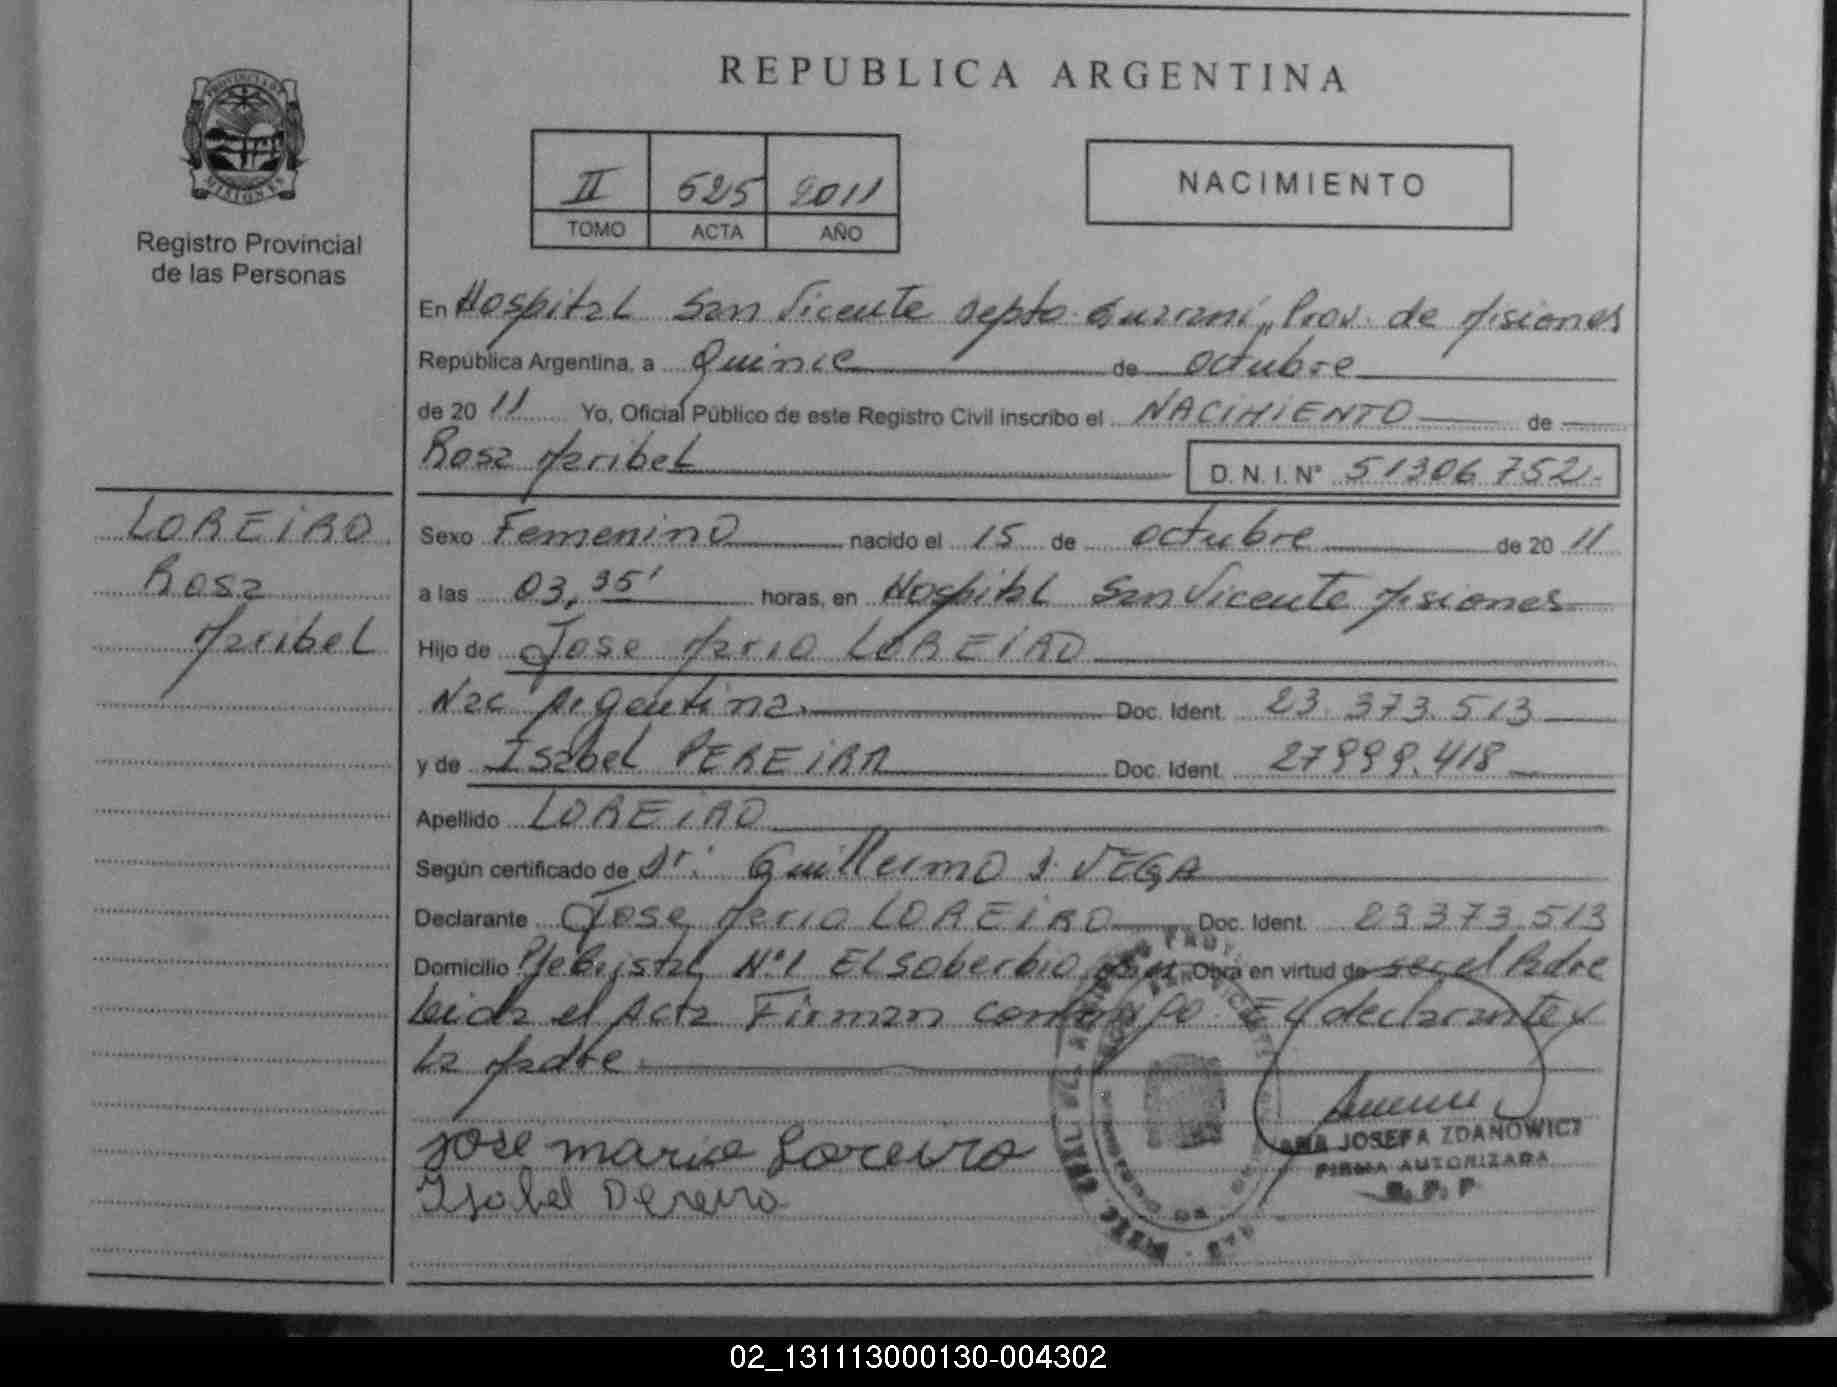 REPUBLICA ARGENTINA
PROVINCIA DE
MISIONES
Registro Provincial
de las Personas
II 525 2011
TOMO ACTA AÑO
NACIMIENTO
En Hospital San Vicente Depto Guarani,, Prov. de Misiones
República Argentina, a Quince de octubre
de 20 11 Yo, Oficial Público de este Registro Civil inscribo el NACIMIENTO de
Rosa Maribel D. N. I. N° 51306 752.-
LOREIRO
Rosa
Maribel
Sexo Femenino nacido el 15 de octubre de 20 11
a las 03,35' horas, en Hospital San Vicente Misiones
Hijo de Jose Mario LOREIRO
Nac Argentina. Doc. Ident. 23.373.513
y de Isabel PEREIRA Doc. Ident. 27999.418
Apellido LOREIRO
Según certificado de Dr: Guillermo J. VEGA
Declarante Jose Mario LOREIRO Doc. Ident. 23373.513
Domicilio N°1 El Soberbio Obra en virtud de ser el Padre
Leida el Acta Firman conmigo El declarante y
La Madre
jose mario Loreiro
Isabel Pereira
ANA JOSEFA ZDANOWICZ
FIRMA AUTORIZADA
R. P. P
02_131113000130-004302